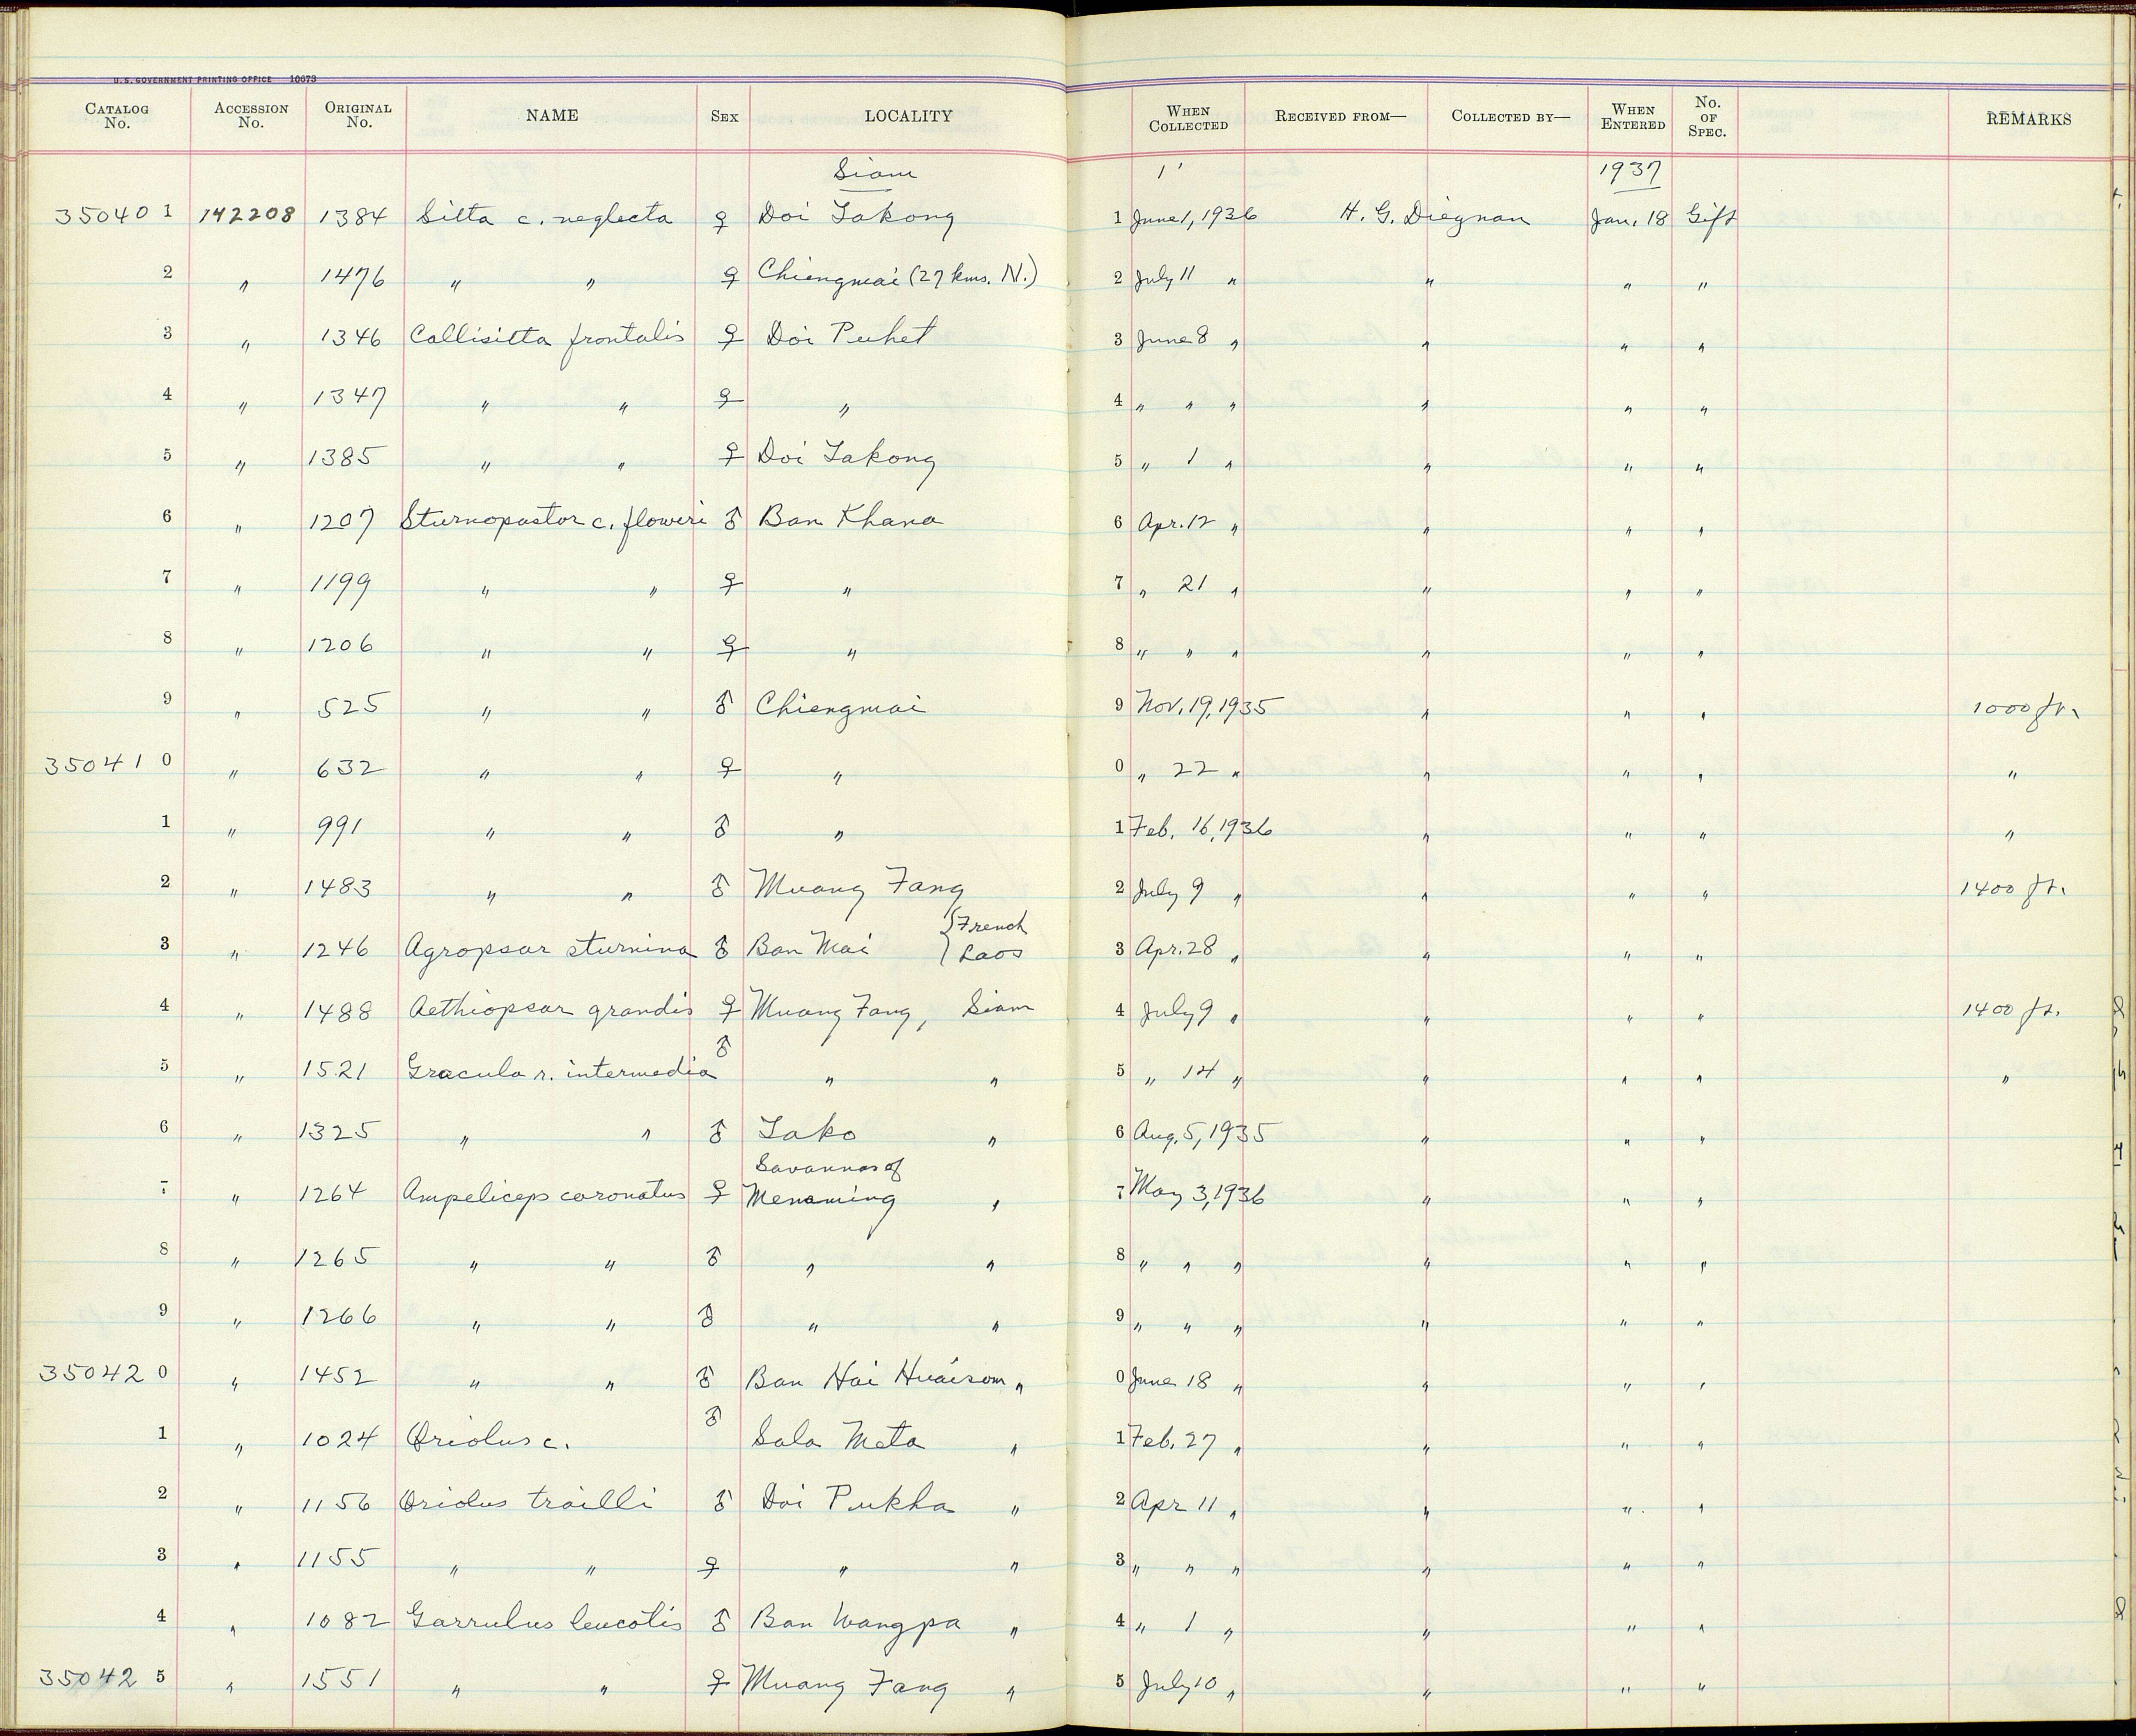 U. S. GOVERNMENT PRINTING OFFICE 10673
CATALOG No. ACCESSION No. ORIGINAL No. NAME SEX LOCALITY WHEN COLLECTED RECEIVED FROM— COLLECTED BY— WHEN ENTERED No. OF SPEC. REMARKS
Siam 1' 1937
35040 1 142208 1384 Sitta c. neglecta ♀ Doi Takong 1 June 1, 1936 H. G. Diegnan Jan. 18 Gift
2 " 1476 " " ♀ Chiengmai (27 kms. N.) 2 July 11 " " " "
3 " 1346 Callisitta frontalis ♀ Doi Puhet 3 June 8 " " " "
4 " 1347 " " ♀ " 4 " " " " " "
5 " 1385 " " ♀ Doi Takong 5 " 1 " " " "
6 " 1207 Sturnopastor c. floweri ♂ Ban Khana 6 Apr. 12 " " " "
7 " 1199 " " ♀ " 7 " 21 " " " "
8 " 1206 " " ♀ " 8 " " " " " "
9 " 525 " " ♂ Chiengmai 9 Nov. 19, 1935 " " " 1000 ft.
35041 0 " 632 " " ♀ " 0 " 22 " " " " "
1 " 991 " " ♂ " 1 Feb. 16, 1936 " " " "
2 " 1483 " " ♂ Muang Fang 2 July 9 " " " " 1400 ft.
3 " 1246 Agropsar sturnina ♂ Ban Mai { French Laos 3 Apr. 28 " " " "
4 " 1488 Aethiopsar grandis ♀ Muang Fang, Siam 4 July 9 " " " " 1400 ft.
5 " 1521 Gracula r. intermedia ♂ " " 5 " 14 " " " " "
6 " 1325 " " ♂ Tako " 6 Aug. 5, 1935 " " "
Savannas of
7 " 1264 Ampeliceps coronatus ♀ Menaming " 7 May 3, 1936 " " "
8 " 1265 " " ♂ " " 8 " " " " " "
9 " 1266 " " ♂ " " 9 " " " " " "
35042 0 " 1452 " " ♂ Ban Hai Huaisom " 0 June 18 " " " "
1 " 1024 Oriolus c. ♂ Sala Meta " 1 Feb. 27 " " " "
2 " 1156 Oriolus trailli ♂ Doi Pukha " 2 Apr 11 " " " "
3 " 1155 " " ♀ " " 3 " " " " " "
4 " 1082 Garrulus leucotis ♂ Ban Wangpa " 4 " 1 " " " "
35042 5 " 1551 " " ♀ Muang Fang " 5 July 10 " " " "